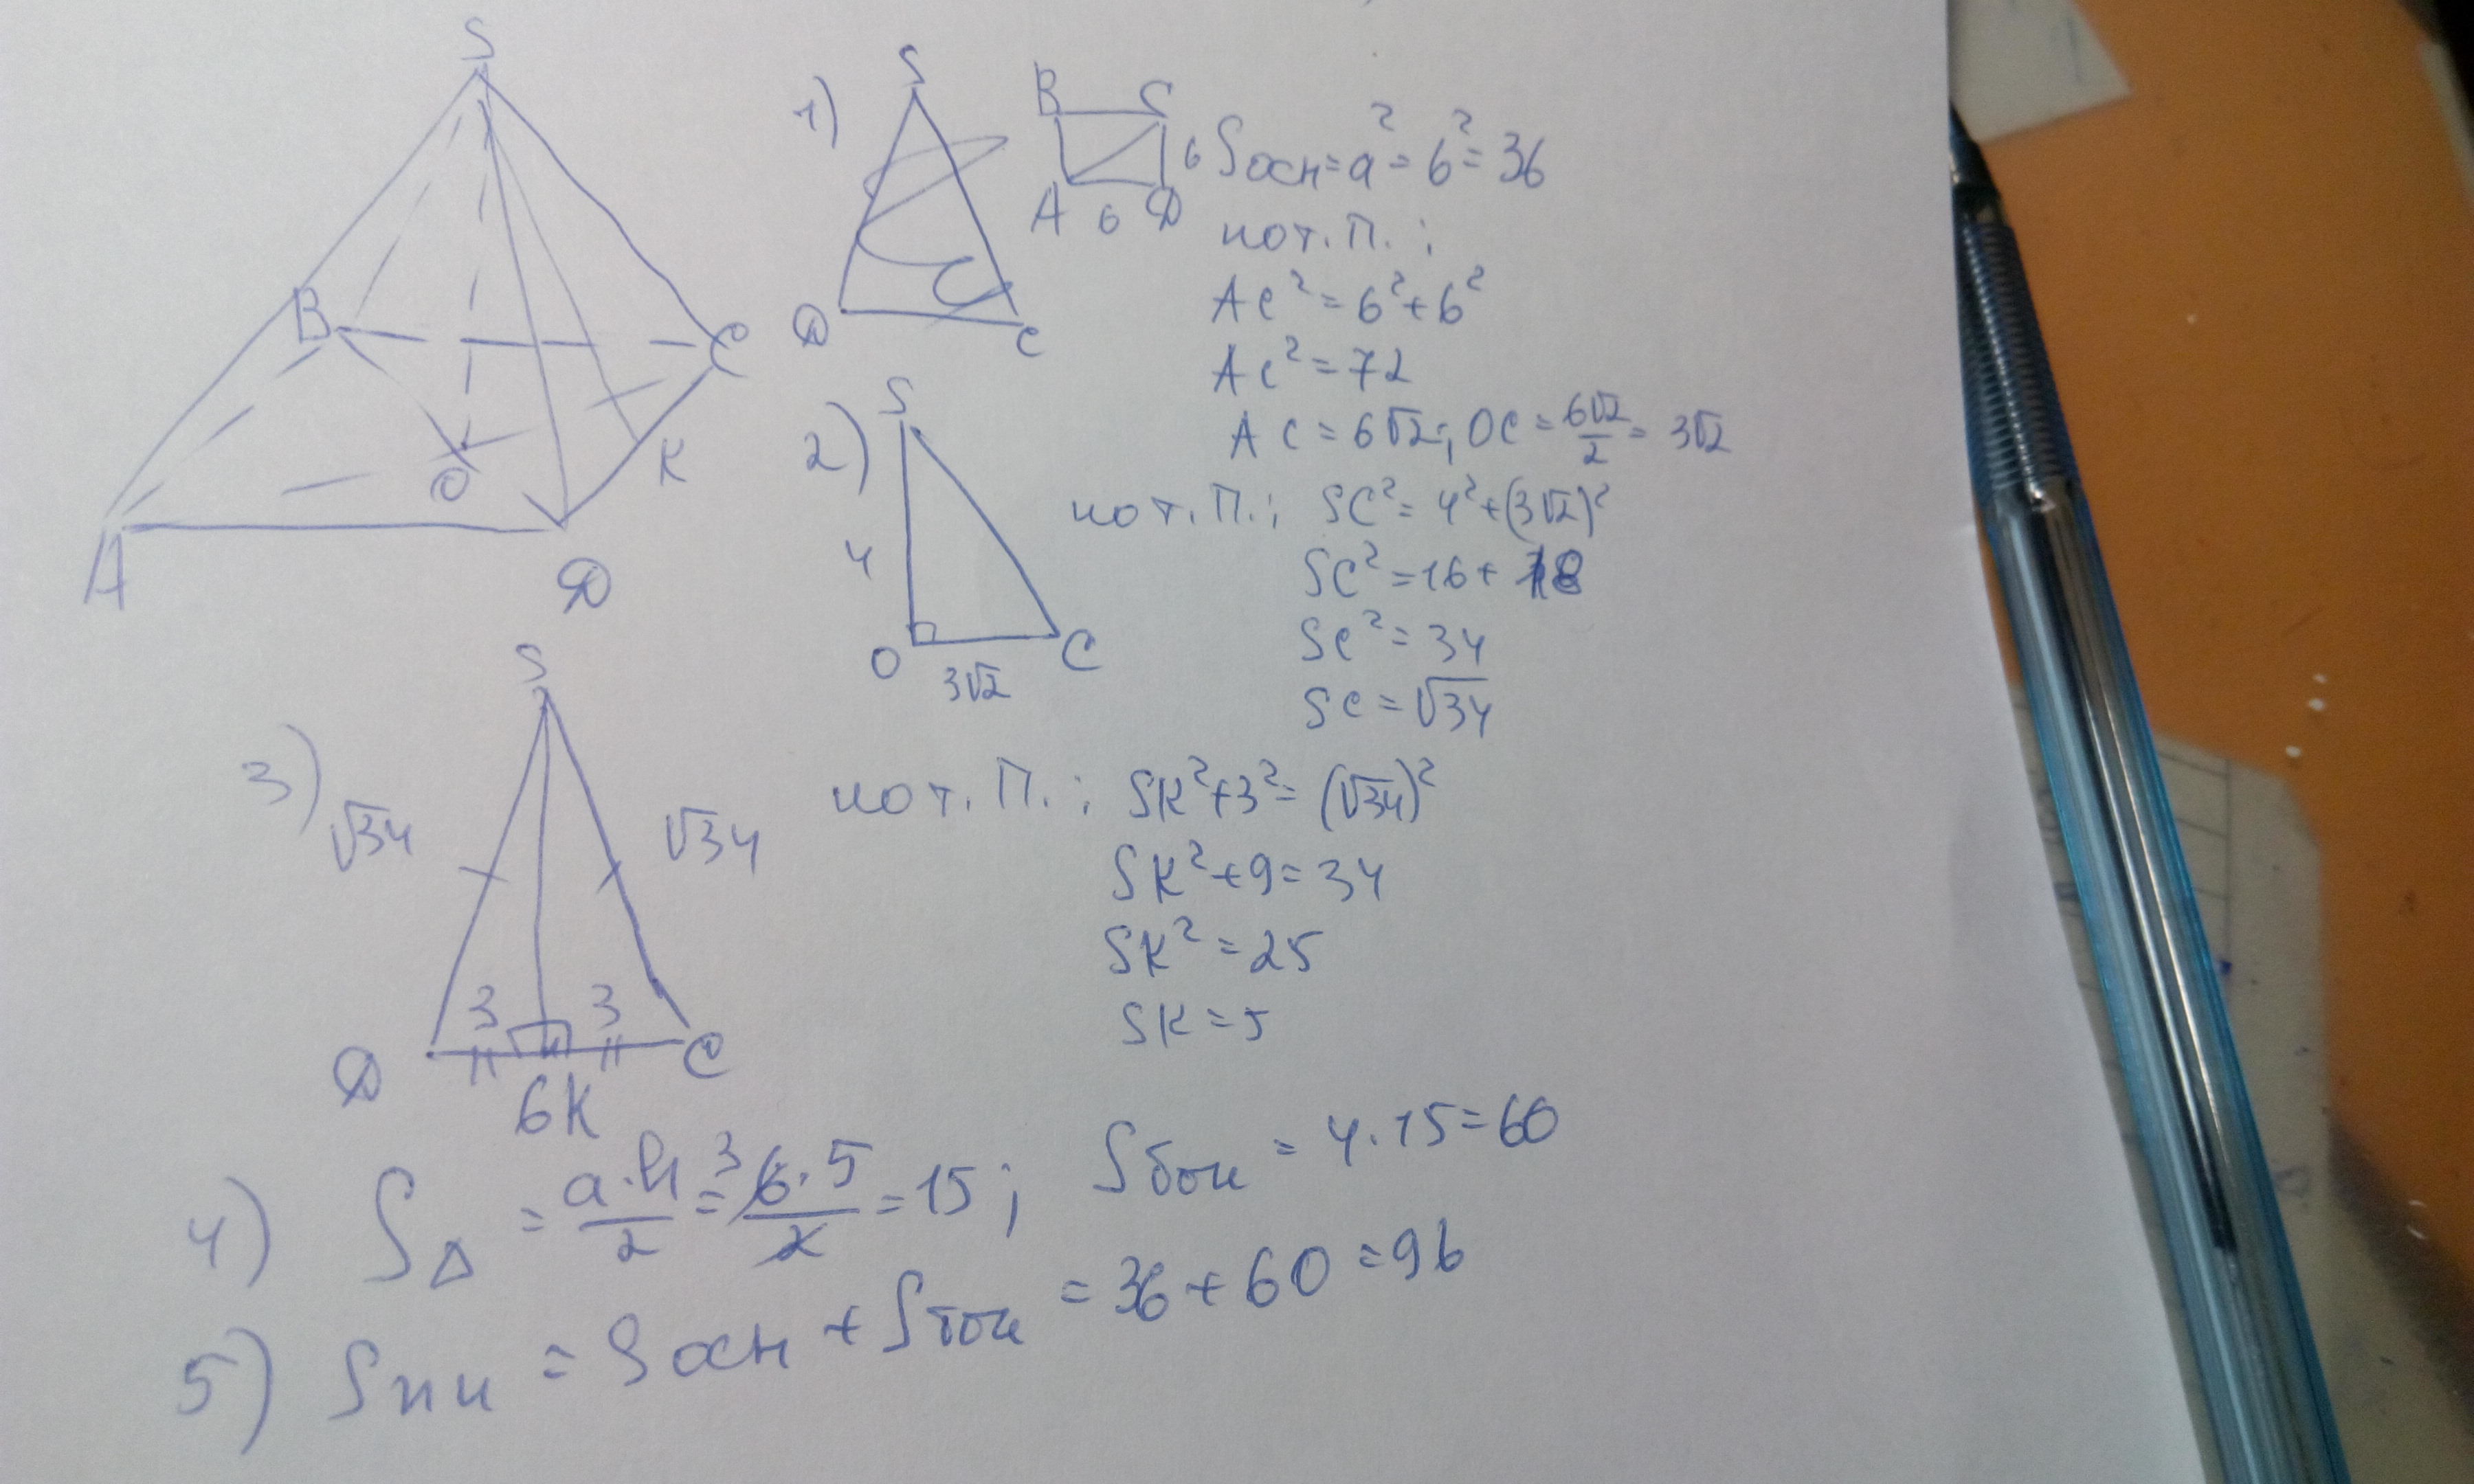 S
B
C
O
K
A
D
1)
S
D
C
B C
6
A 6 D
Sосн=a²=6²=36
по т. П.:
AC²=6²+6²
AC²=72
AC=6√2; OC=6√2/2=3√2
2)
S
4
O
C
3√2
по т. П.: SC²=4²+(3√2)²
SC²=16+18
SC²=34
SC=√34
3)
S
√34
√34
3 3
D
C
6 K
по т. П.: SK²+3²=(√34)²
SK²+9=34
SK²=25
SK=5
4) S△=a·h/2=6·5/2=15; Sбок=4·15=60
3
5) Sпп=Sосн+Sбок=36+60=96